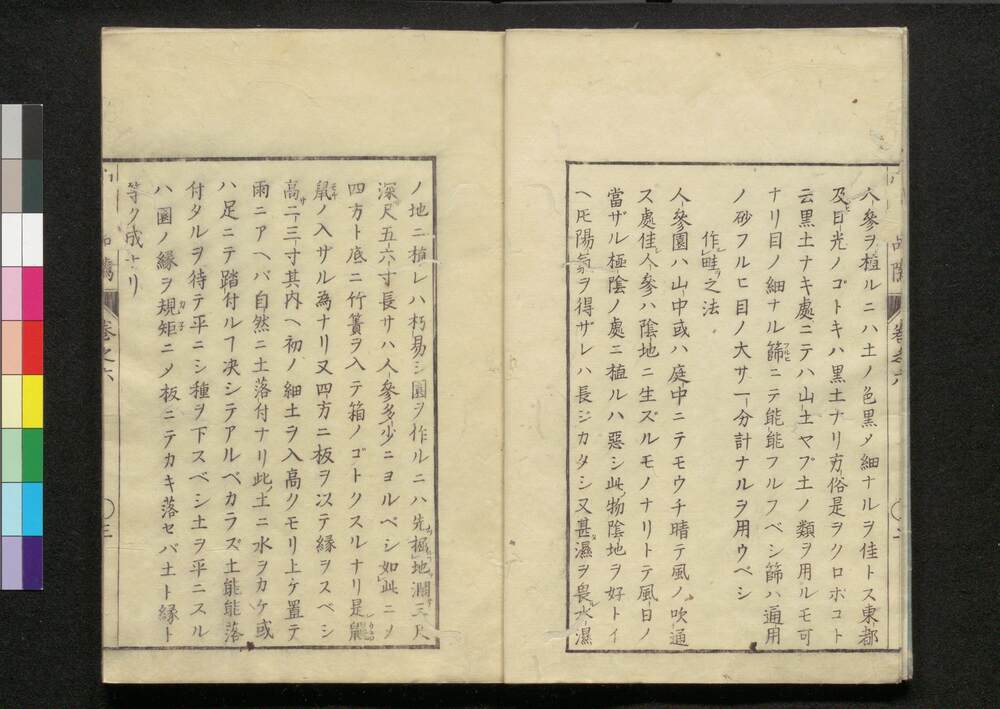 人參ヲ植ルニハ土ノ色黒メ細ナルヲ佳トス東都
及日光ノゴトキハ黒土ナリ方俗是ヲクロボコト
云黒土ナキ處ニテハ山土ヤブ土ノ類ヲ用ルモ可
ナリ目ノ細ナル篩ニテ能能フルフベシ篩ハ通用
ノ砂フルヒ目ノ大サ一分計ナルヲ用ウベシ
作畦之法
人參園ハ山中或ハ庭中ニテモウチ晴テ風ノ吹通
ス處佳人參ハ陰地ニ生ズルモノナリトテ風日ノ
當ザル極陰ノ處ニ植ルハ惡シ此物陰地ヲ好トイ
ヘ𪜈陽氣ヲ得ザレハ長ジカタシ又甚濕ヲ畏水濕
ノ地ニ植レハ朽易シ園ヲ作ルニハ先掘地濶三尺
深尺五六寸長サハ人參多少ニヨルベシ如此ニメ
四方ト底ニ竹簀ヲ入テ箱ノゴトクスルナリ是鼴
鼠ノ入ザル為ナリ又四方ニ板ヲ以テ縁ヲスベシ
高二三寸其内ヘ初ノ細土ヲ入高クモリ上ケ置テ
雨ニアヘバ自然ニ土落付ナリ此土ニ水ヲカケ或
ハ足ニテ踏付ルヿ决シテアルベカラズ土能能落
付タルヲ待テ平ニシ種ヲ下スベシ土ヲ平ニスル
ハ園ノ縁ヲ規矩ニメ板ニテカキ落セバ土ト縁ト
等ク成ナリ